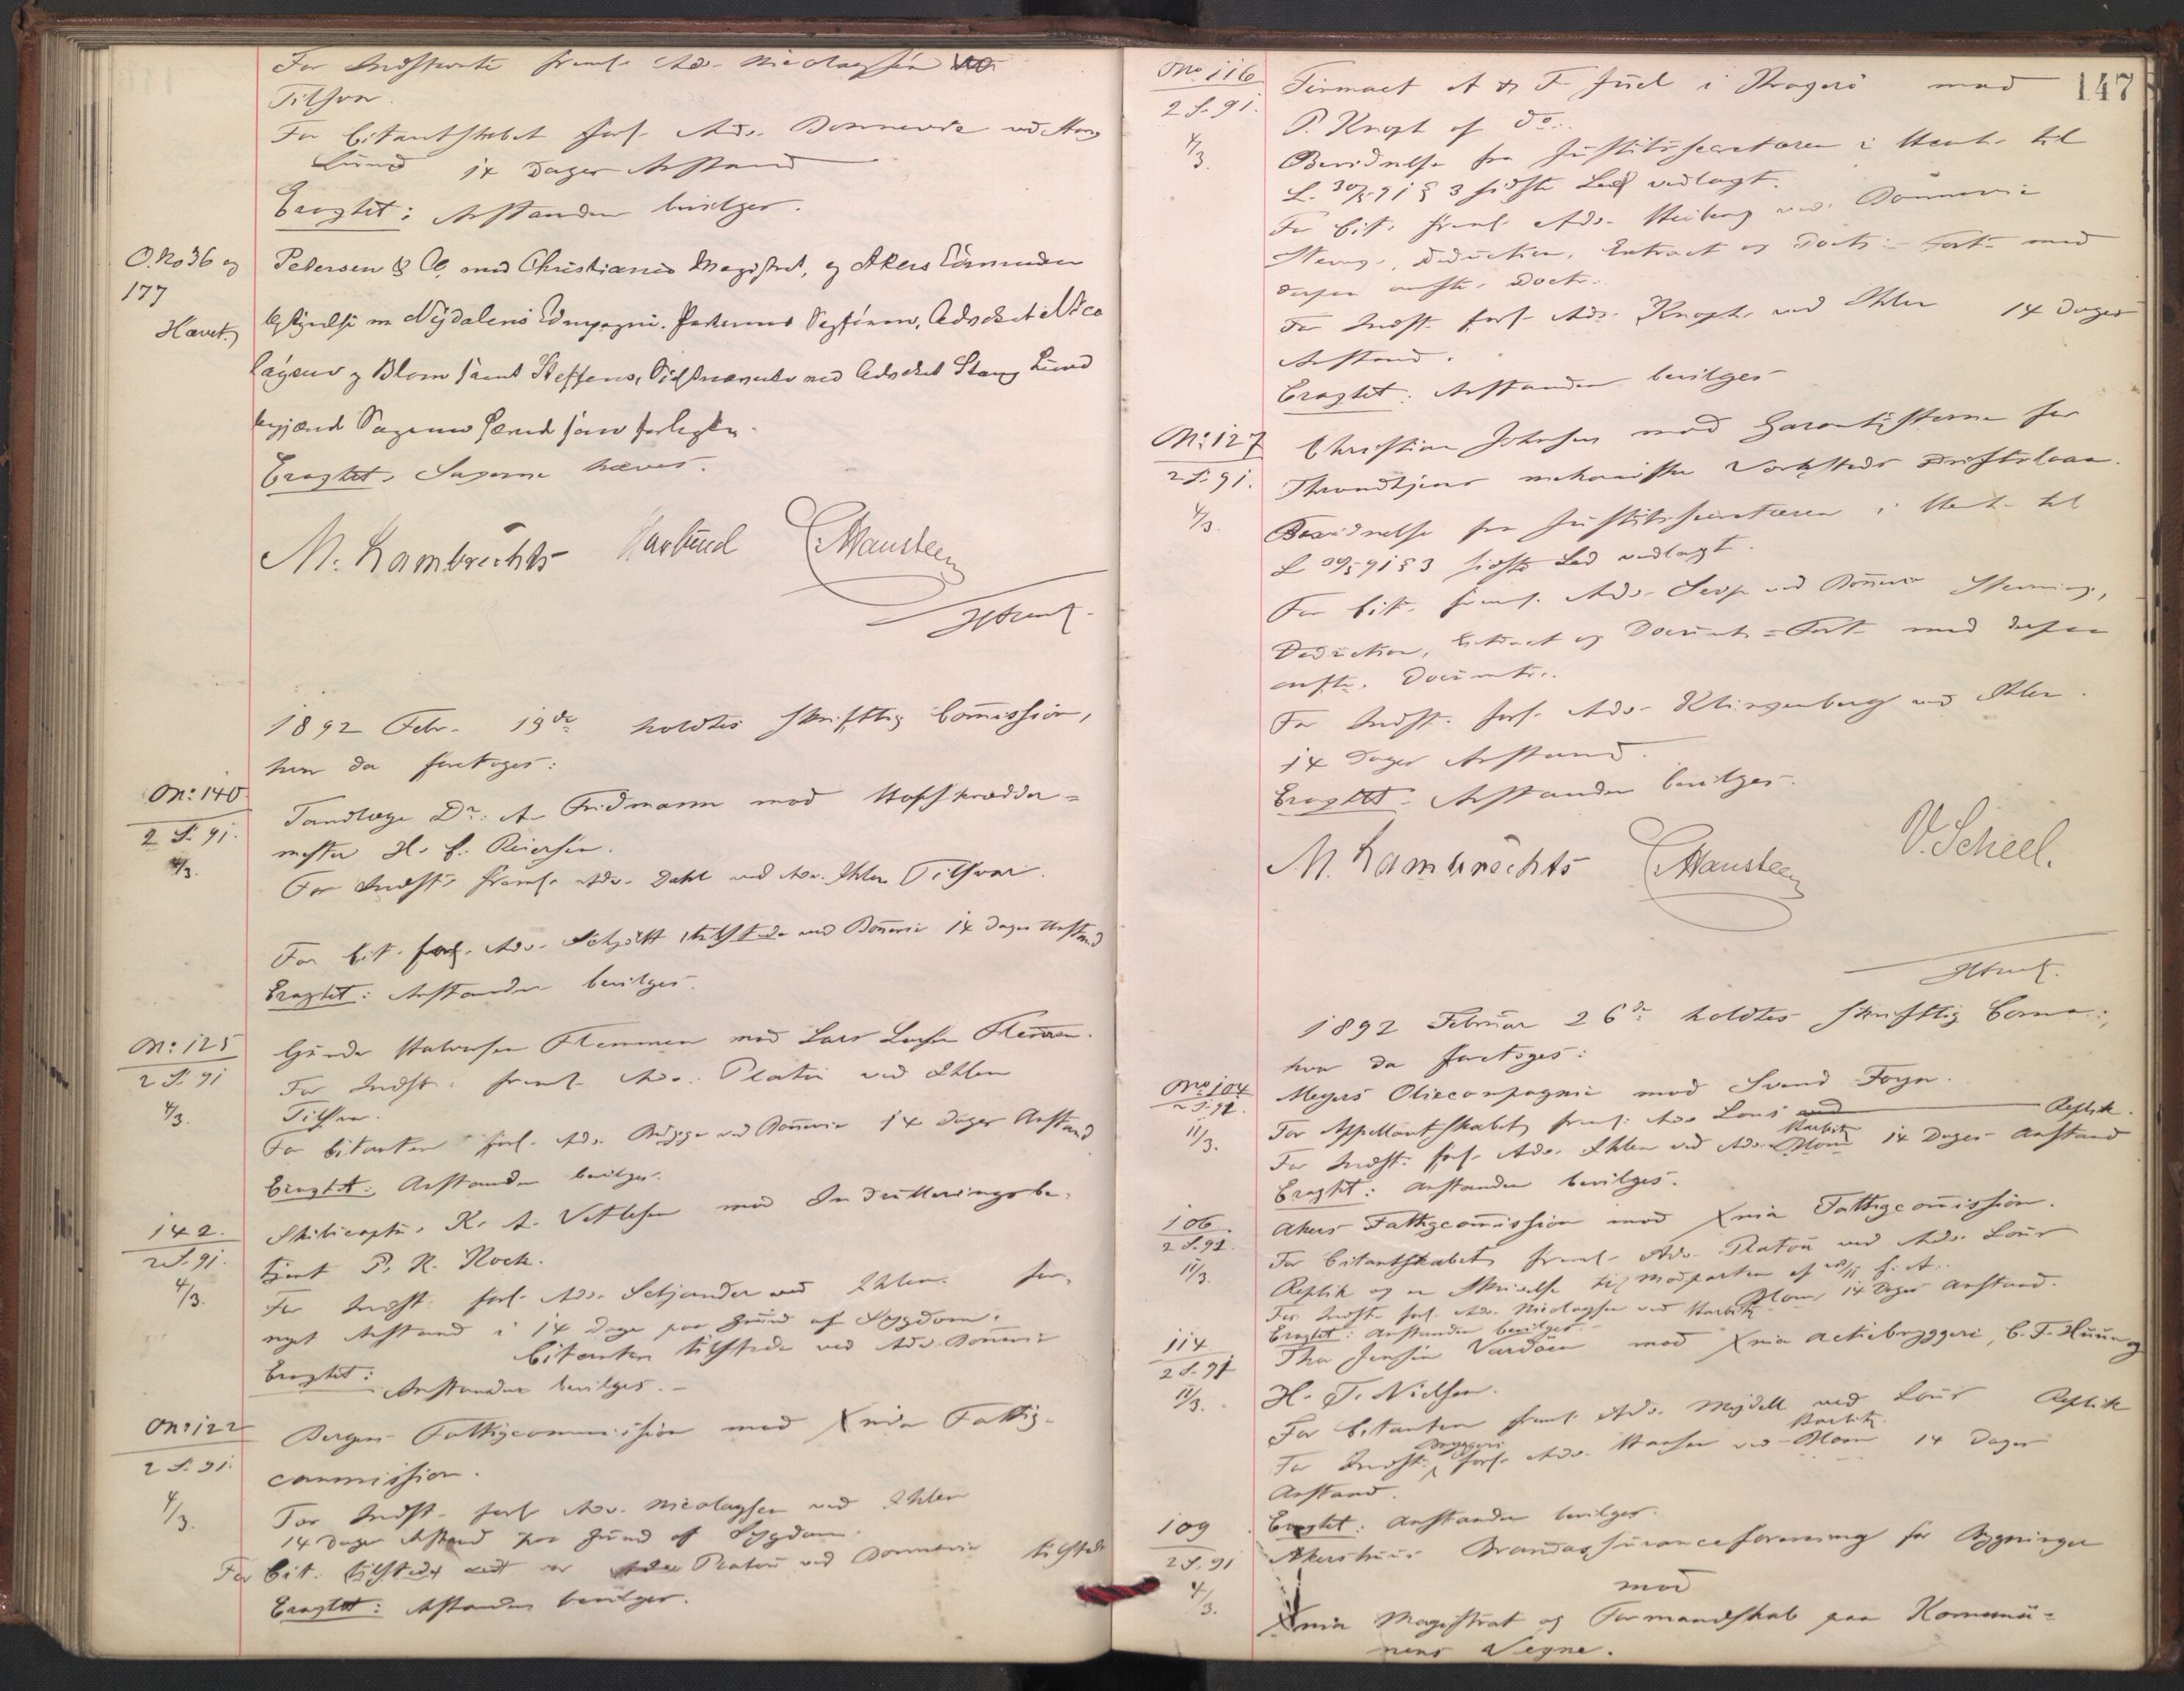 For Indstevnte freml. Adv. Nicolaysen
Tilsvar.
For Citantskabet forl. Adv. Donnevie ved Stang
Lund 14 Dages Anstand
Eragtet: Anstanden bevilges.
O. No 36 og
177
Hævet
Petersen & Co. mod Christiania Magistrat, og Akers Commune
Nydalens Compagni. Advokat Nico
laysen og Blom samt Steffens, ved Advokat Stang Lund
begjærede Sagerne hævede som forligte.
Eragtet, Sagerne hæves.
M. Lambrechts Harbued C. Hansteen
1892 Febr. 19de holdtes skriftlig Commission,
hvor da foretoges:
No: 140
2 S. 91.
4/3.
Tandlæge Dr. A. Fridmann mod Hofskrædder=
mester H. C. Reiersen.
For Indst. freml. Adv. Dahl ved Adv. Ihlen Tilsvar.
For Cit. forl. Adv. Schjøtt tilstede ved Donnevie 14 Dages Anstand
Eragtet: Anstanden bevilges.
No: 125
2 S. 91
4/3.
Gunder Halvorsen Flemmen mod Lars Larsen Flemmen.
For Indst. freml. Adv. Platou ved Ihlen
Tilsvar.
For Citanten forl. Adv. Bugge ved Donnevie 14 Dages Anstand
Eragtet: Anstanden bevilges.
142.
2 S. 91.
4/3.
Skibscaptn. K. A. Vetlesen mod Indrulleringsbe-
tjent P. R. Rock.
For Indst. forl. Adv. Schjander ved Ihlen for-
nyet Anstand i 14 Dage paa Grund af Sygdom.
Citanten tilstede ved Adv. Donnevie
Eragtet: Anstanden bevilges.
No: 122
2 S. 91.
4/3.
Bergens Fattigcommission mod Xnia Fattig-
commission.
For Indst. forl. Adv. Nicolaysen ved Ihlen
14 Dages Anstand paa Grund af Sygdom.
For Cit. Adv. Platou ved Donnevie tilstede
Eragtet: Anstanden bevilges.
147
No 116
2 S. 91.
4/3.
Firmaet A & F. Juel i Kragerø mod
P. Knoph af do.
Bevidnelse fra Justitssecretæren i Henh. til
L. 30/5 91 § 3 sidste Led vedlagt.
For Cit. freml. Adv. Heiberg ved Donnevie
Stevng., Deduction, Extract og Docts.-Fort. med
deri anførte Doct.
For Indst. forl. Adv. Knoph ved Ihlen 14 Dages
Anstand.
Eragtet: Anstanden bevilges
No: 127
2 S. 91.
4/3.
Christian Johnsen mod Garantisterne for
Throndhjems mekaniske Værksteds Driftslaan.
Bevidnelse fra Justitssecretæren i Henh. til
L 30/5 91 § 3 sidste Led vedlagt.
For Cit. freml. Adv. Lexp ved Donnevie Stevning,
Deduction, Extract og Document-Fort. med deri
anfte. Documenter.
For Indst. forl. Adv. Klingenberg ved Ihlen.
14 Dages Anstand.
Eragtet. Anstanden bevilges.
M. Lambrechts C. Hansteen V. Scheel.
1892 Februar 26de holdtes skriftlig Comm:,
hvor da foretoges:
No 104
2 S. 91.
11/3.
Meyers Oliecompagni mod Svend Foyn.
For Appellantskabet freml. Adv Lous Replik.
For Indst. forl. Adv. Ihlen ved Adv. Harbitz 14 Dages Anstand
Eragtet: Anstanden bevilges.
106
2 S. 91.
11/3.
Akers Fattigcommission mod Xnia Fattigcommission.
For Citantskabet freml. Adv. Platou ved Adv. Lous
Replik og en Skrivelse til Modparten af f. A.
For Indst. forl. Adv. Nicolaysen ved Harbitz 14 Dages Anstand.
Eragtet: Anstanden bevilges.
114
2 S. 91
11/3.
Thor Jensen Vardøen mod Xnia Actiebryggeri, C. F. Huun og
H. T. Nielsen.
For Citanten freml. Adv. Mejdell ved Lous Replik
For Indst. Bryggeri forl. Adv. Hansen ved Harbitz 14 Dages
Anstand.
Eragtet: Anstanden bevilges.
109
2 S. 91
4/3.
Akershuus Brandassuranceforening for Bygninger
mod
Xnia Magistrat og Formandskab paa Kommu=
nens Vegne.